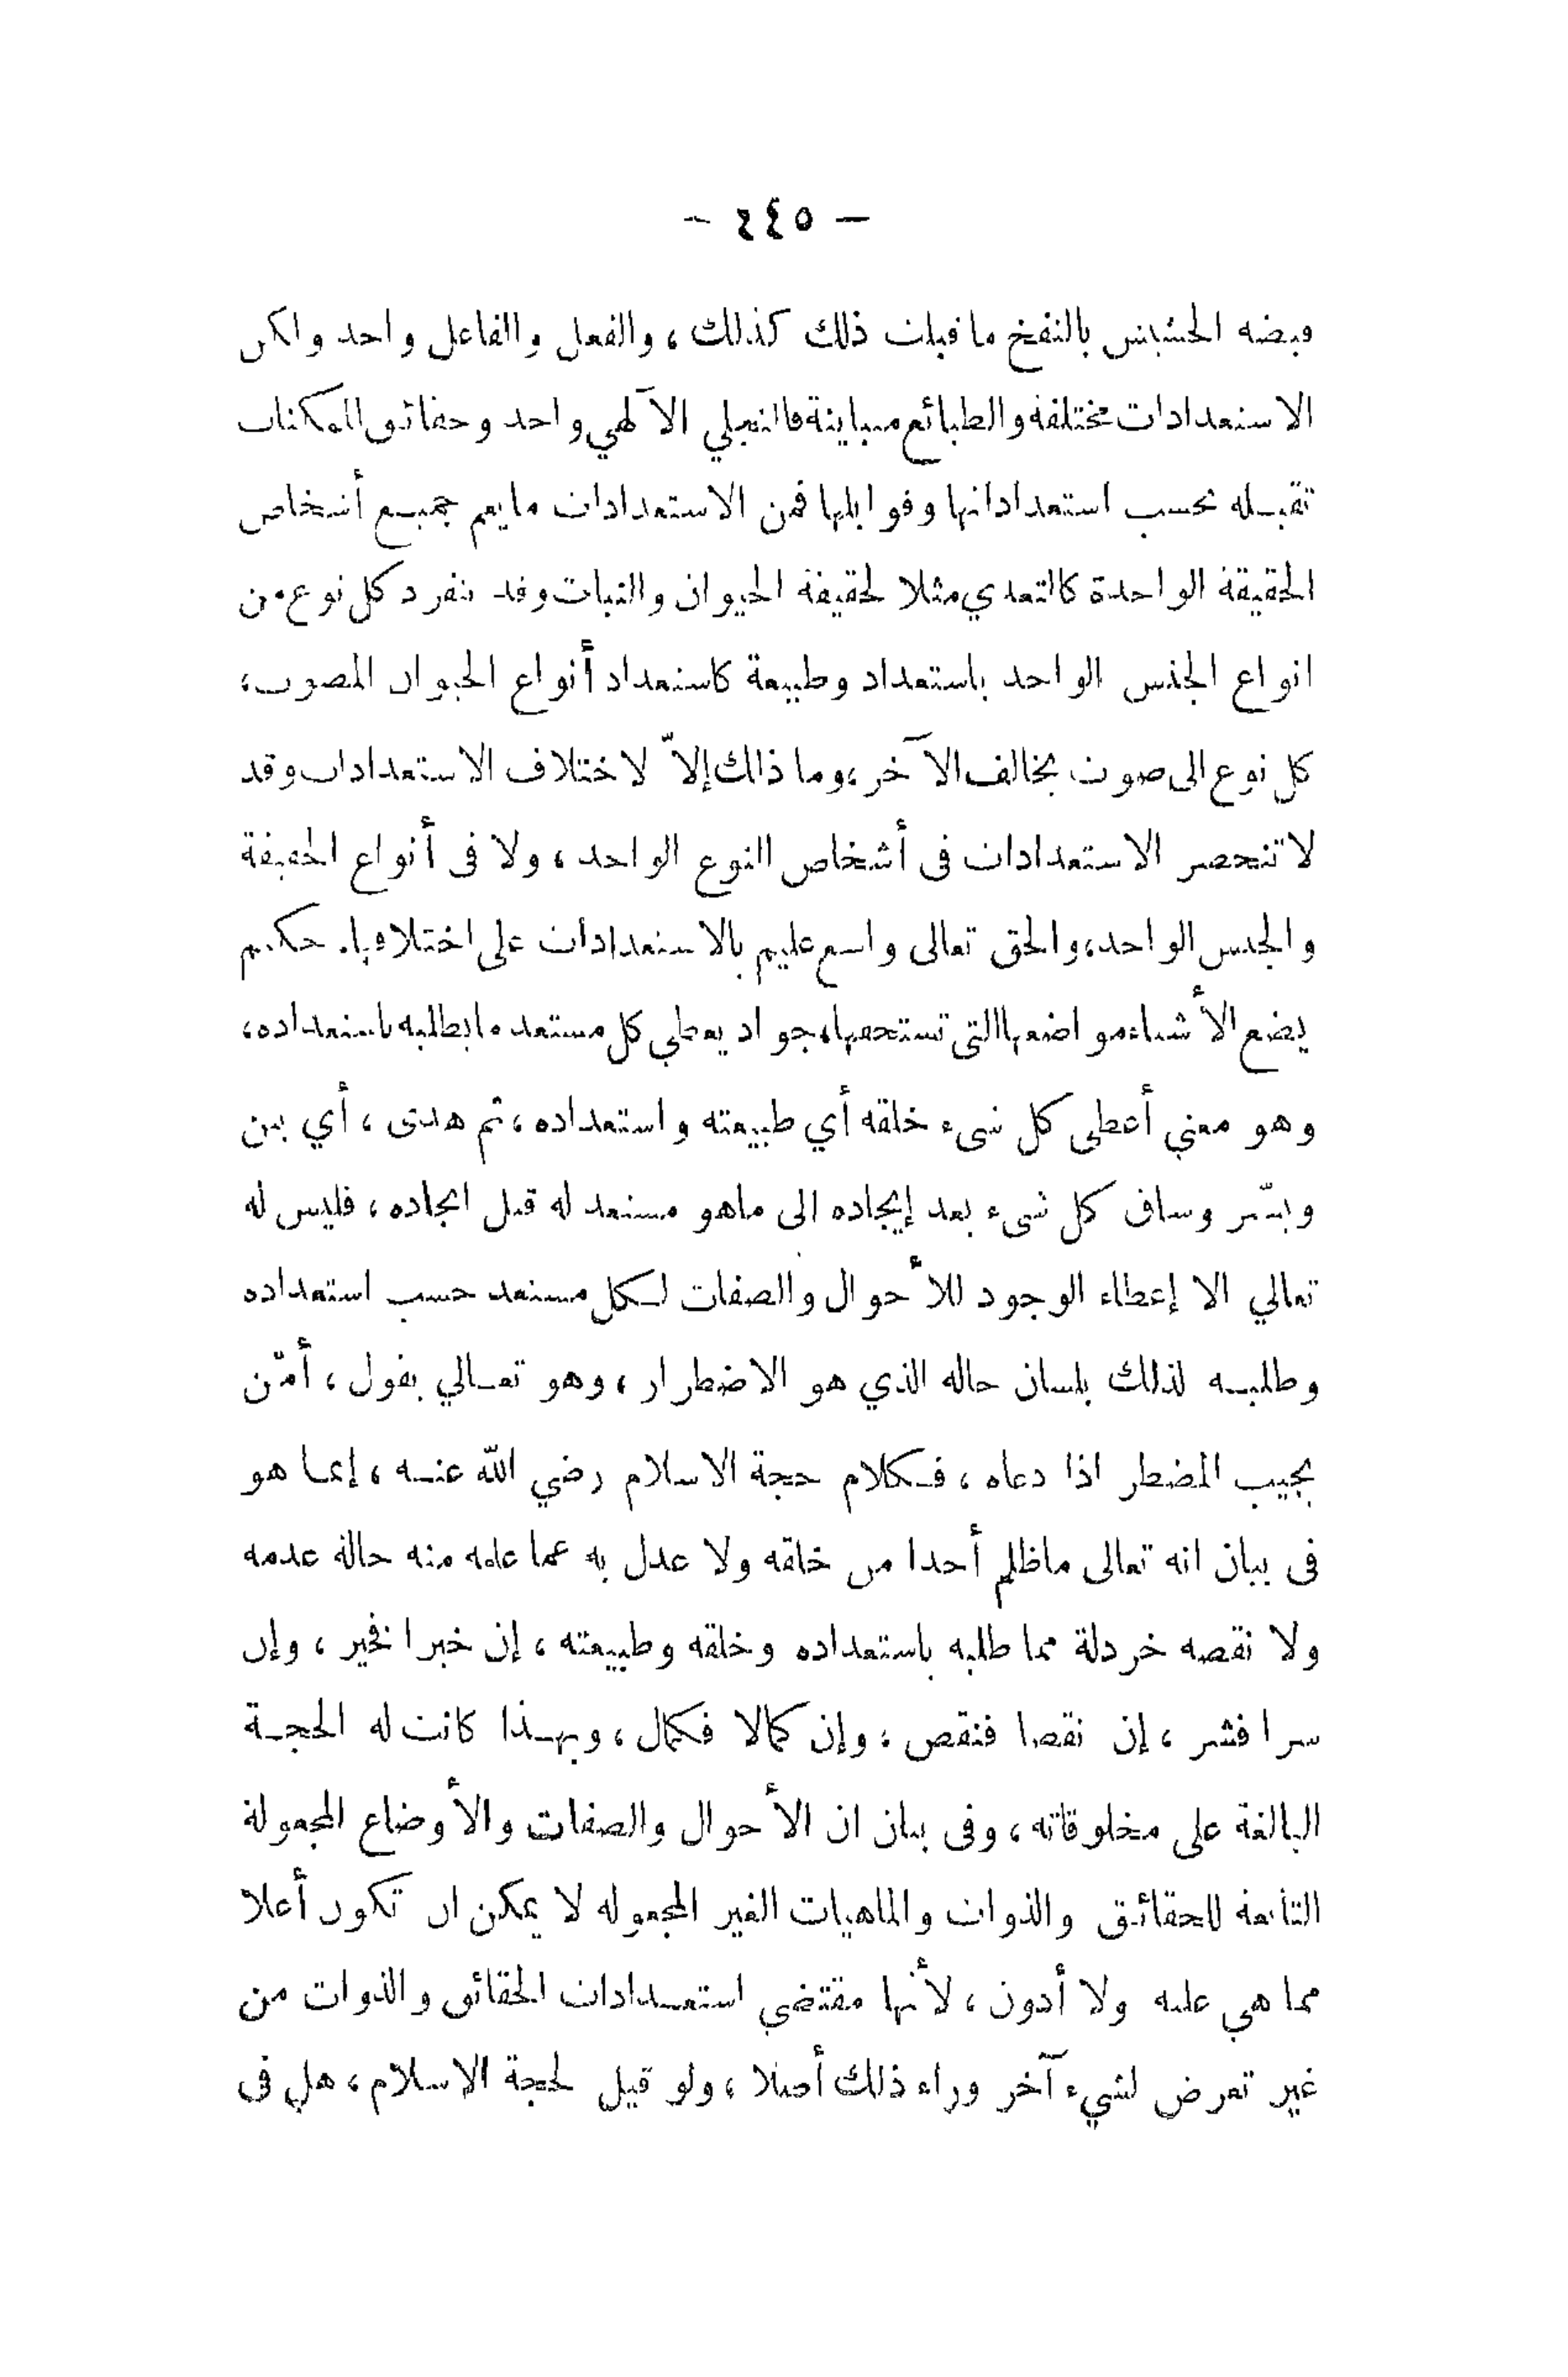 — ٤٤٥ —
قبضة الحشيش بالنفخ ما قبلت ذلك كذلك ، والفعل والفاعل واحد ولكن
الاستعدادات مختلفة والطبائع متباينة فالتجلي الآلهي واحد وحقائق الممكنات
تقبله بحسب استعداداتها وقوابلها فمن الاستعدادات ما يعم جميع أشخاص
الحقيقة الواحدة كالتغذي مثلا لحقيقة الحيوان والنبات وقد تنفرد كل نوع من
انواع الجنس الواحد باستعداد وطبيعة كاستعداد أنواع الحيوان المصوت ،
كل نوع الى صوت يخالف الآخر ، وما ذالك إلاّ لاختلاف الاستعدادات وقد
لا تنحصر الاستعدادات فى أشخاص النوع الواحد ، ولا فى أنواع الحقيقة
والجنس الواحد ، والحق تعالى واسع عليم بالاستعدادات على اختلافها . حكيم
يضع الأشياء مواضعها التى تستحقها ، جواد يعطي كل مستعد ما يطلبه باستعداده ،
وهو معنى أعطى كل شىء خلقه أي طبيعته واستعداده ، ثم هدى ، أي بين
ويسّر وساق كل شىء بعد إيجاده الى ماهو مستعد له قبل ايجاده ، فليس له
تعالي الا إعطاء الوجود للأحوال والصفات لكل مستعد حسب استعداده
وطلبه لذلك بلسان حاله الذي هو الاضطرار ، وهو تعالي يقول ، أمّن
يجيب المضطر اذا دعاه ، فكلام حجة الاسلام رضي الله عنه ، إنما هو
فى بيان انه تعالى ماظلم أحدا من خلقه ولا عدل به عما علمه منه حالة عدمه
ولا نقصه خردلة مما طلبه باستعداده وخلقه وطبيعته ، إن خيرا فخير ، وإن
شرا فشر ، إن نقصا فنقص ، وإن كمالا فكمال ، وبهذا كانت له الحجة
البالغة على مخلوقاته ، وفى بيان ان الأحوال والصفات والأوضاع المجعولة
التابعة للحقائق والذوات والماهيات الغير المجعوله لا يمكن ان تكون أعلا
مما هي عليه ولا أدون ، لأنها مقتضي استعدادات الحقائق والذوات من
غير تعرض لشيء آخر وراء ذلك أصلا ، ولو قيل لحجة الاسلام ، هل فى